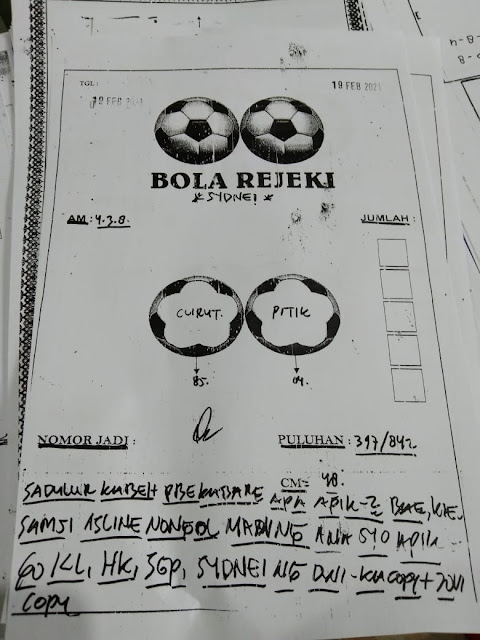 TGL :
19 FEB 2021 19 FEB 2021
BOLA REJEKI
* SYDNEI *
AM : 4.3.8. JUMLAH :
CURUT. PITIK
85. 04.
NOMOR JADI : PULUHAN : 397/842
CM= 48.
SADULUR KABEH PRE KABARE APA APIK-2 BAE, KIE.
SAMSI ASLINE NONGOL MADING ANA SIO APIK
GO KL, HK, SGP, SYDNEI NG copy+
copy